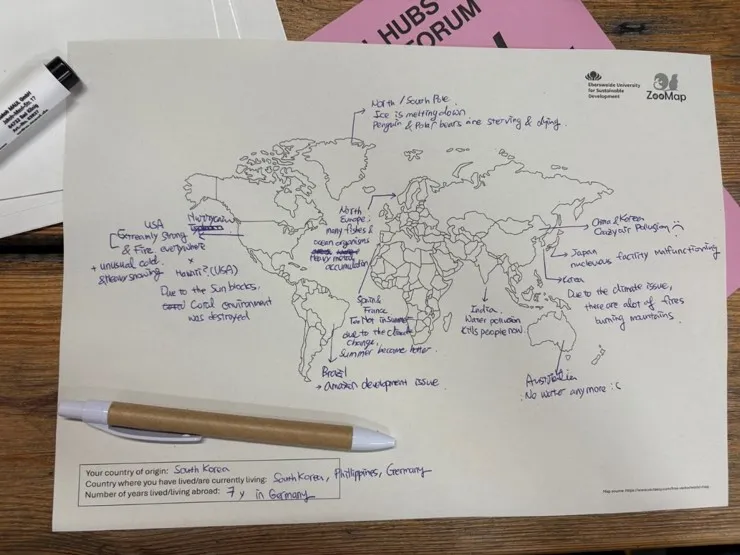 L HUBS
FORUM
Eberswalde University
for Sustainable
Development
ZooMap
North / South Pole
Ice is melting down
Penguin & Polar bears are sterving & dying.
USA
Hurricane
Extreamly strong
& Fire everywhere
+ unusual cold
& Heavy snowing
Hawaii? (USA)
Due to the Sun blocks.
Coral environment
was destroyed
North
Europe.
many fishes &
ocean organisms
Heavy metal
accumulation
Spain &
France
Too Hot in summer
due to the climate
change.
Summer become hotter.
Brazil
→ amazon development issue
India
Water pollution
kills people now.
China & Korea
Crazy air Pollusion :(
Japan
nucleuous facility malfunctioning
Korea
Due to the climate issue,
there are alot of fires
burning mountains.
Australia
No water anymore :(
Your country of origin: South Korea
Country where you have lived/are currently living: South Korea, Phillippines, Germany
Number of years lived/living abroad: 7 y in Germany